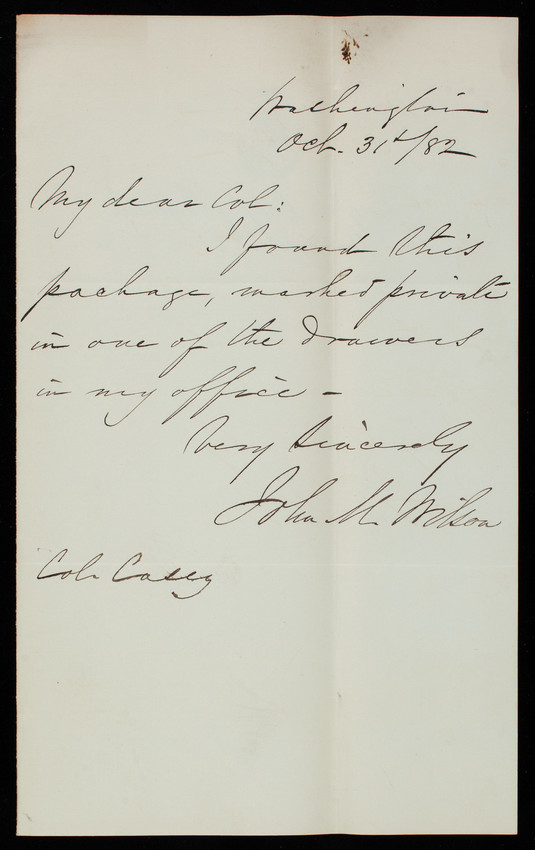 Washington
Oct. 31st/82
My dear Col:
I found this
package, marked private
in one of the drawers
in my office -
Very Sincerely
John M. Wilson
Col. Casey